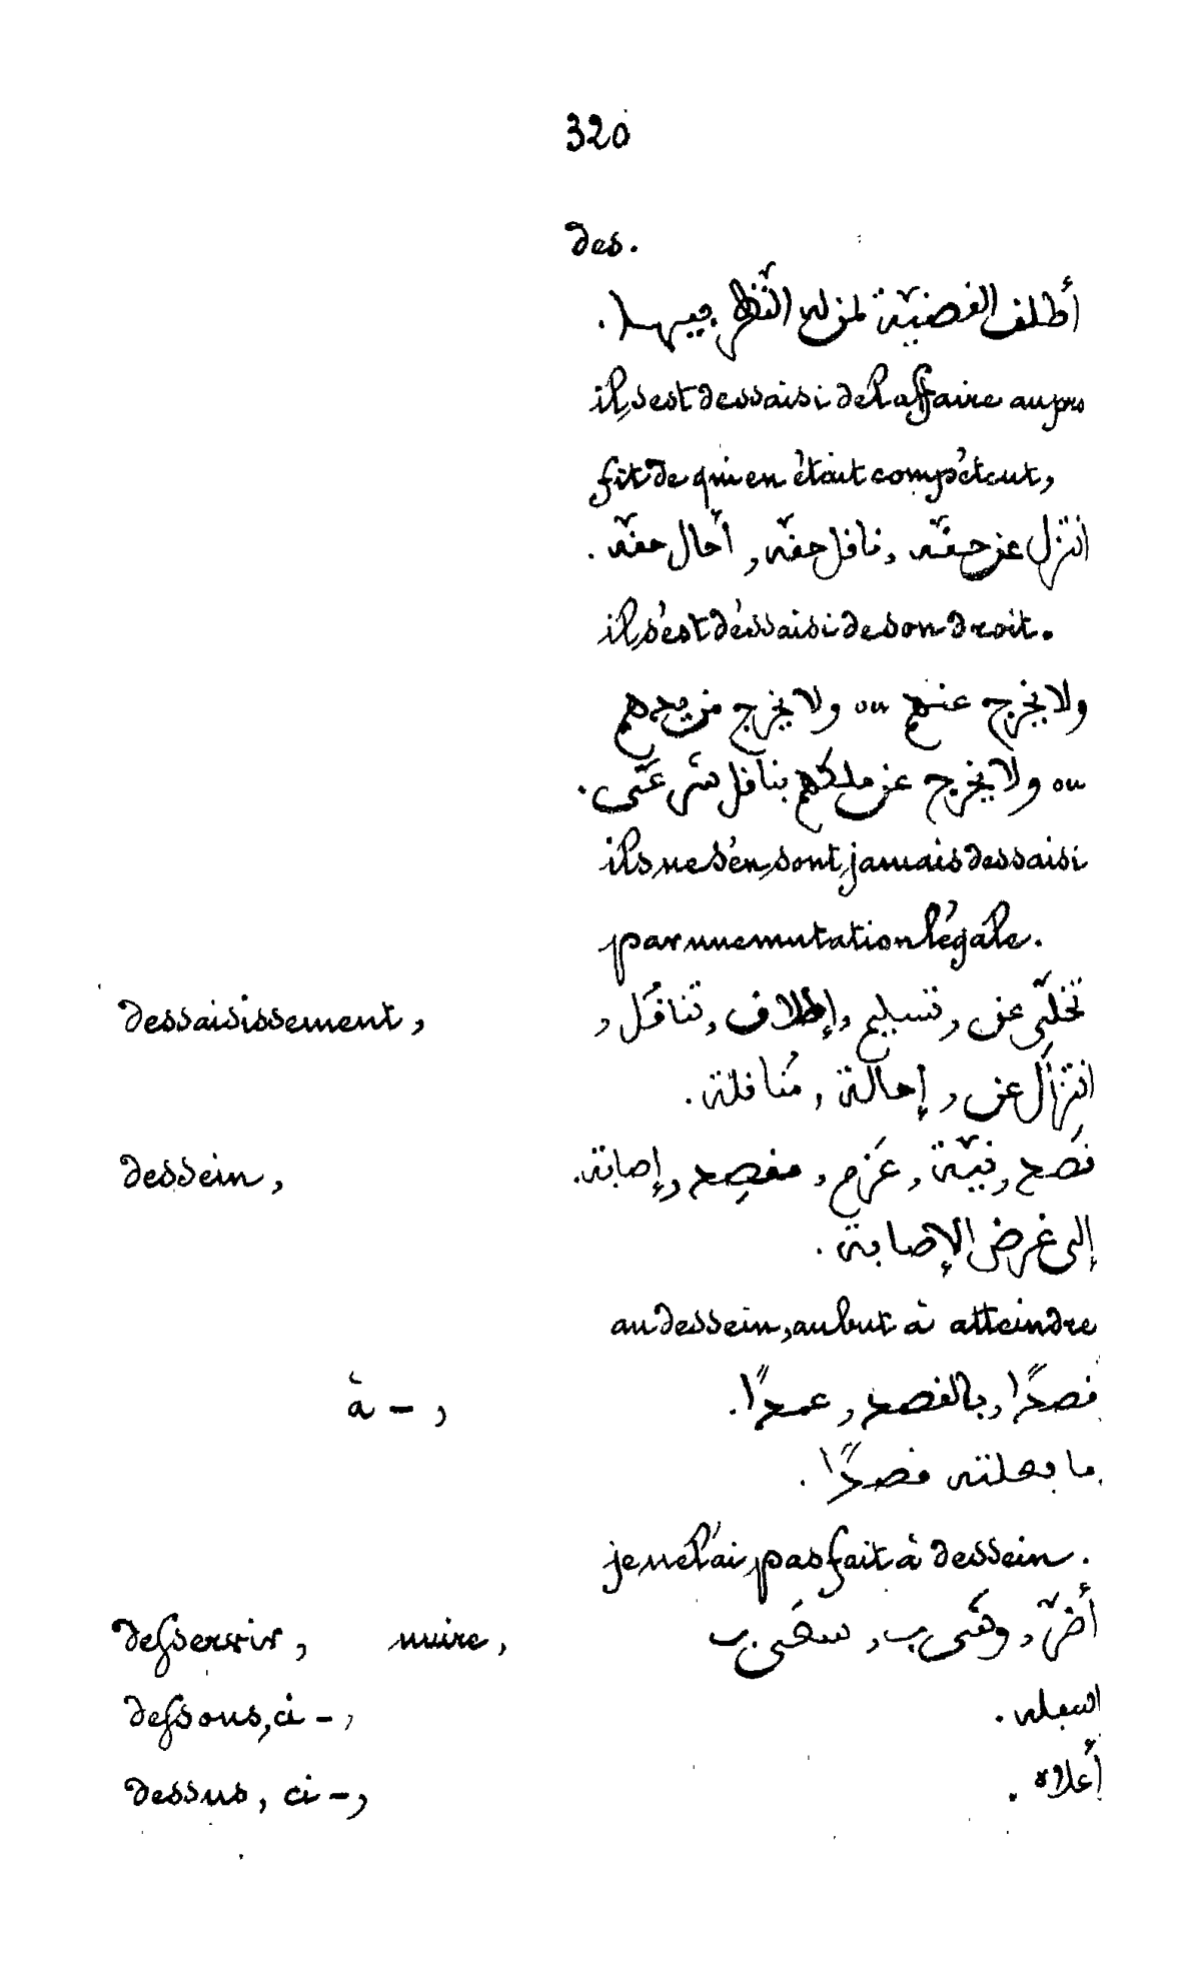 320
des.
أطلق القضيّة لمن له النّظر فيها.
il s'est dessaisi de l'affaire au pro
fit de qui en était compétent,
انتزل عن حقّه, ناقل حقّه, أحال حقّه.
il s'est déssaisi de son droit.
ولا يخرج عنهم ou ولا يخرج من يدهم
ou ولا يخرج عن ملكهم بناقل شرعي.
ils ne s'en sont jamais dessaisi
par une mutation légale.
dessaisissement, تخلّي عن, تسليم, إطلاق, تناقل,
انتزال عن, إحالة, مُناقلة.
dessein, قصد, نيّة, عَزم, مقصِد, إصابة.
إلى غرض الإصابة.
au dessein, au but à atteindre
à –, قصدًا, بالقصد, عمدًا.
ما فعلته قصدًا.
je ne l'ai pas fait à dessein.
desservir, nuire, أضرّ, وشى ب, سعَى ب
dessous, ci –, اسفله.
dessus, ci –, أعلاه.